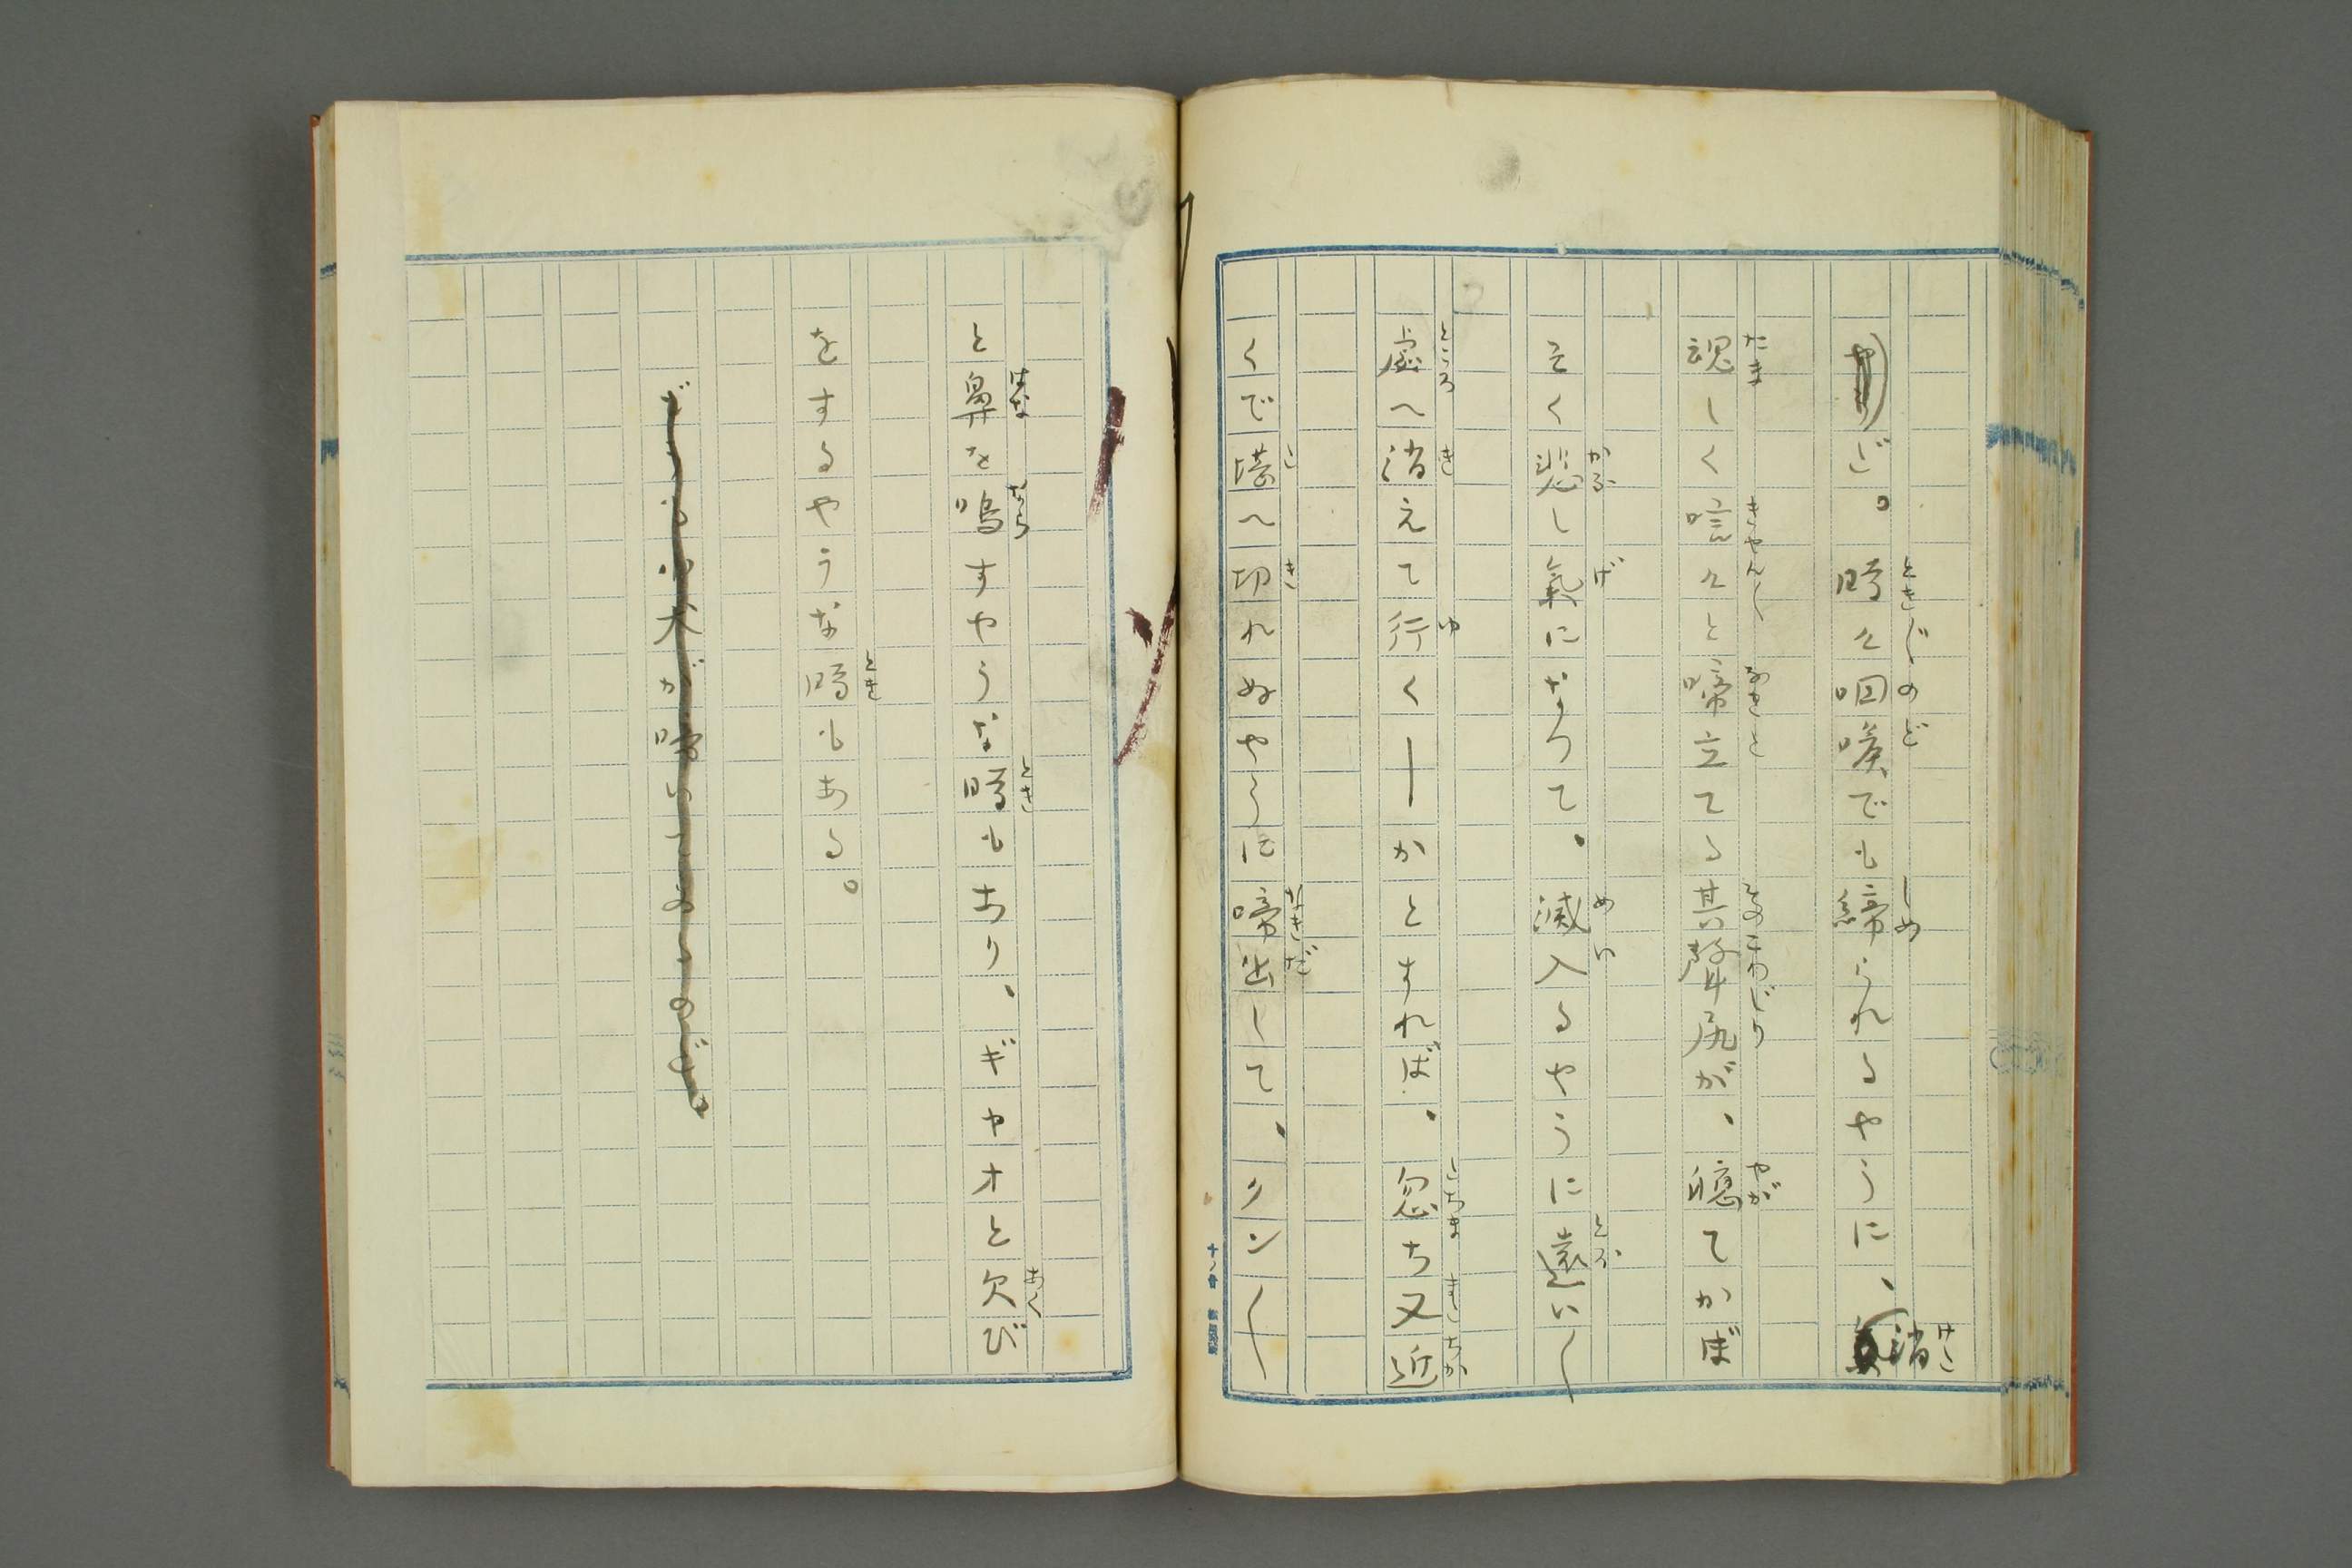 ご。時々咽喉でも締られるやうに、消
魂しく啀々と啼立てる其聲尻が、軈てかぼ
そく悲し氣になつて、滅入るやうに遠い〳〵
處へ消えて行く―かとすれば、忽ち又近
くで堪へ切れぬやうに啼出して、クン〳〵
と鼻を鳴すやうな時もあり、ギャオと欠び
をするやうな時もある。